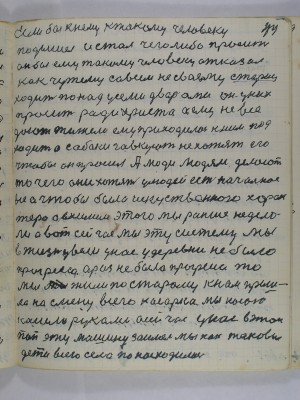 Если бы к нему к такому человеку
подошел и стал чего либо просит
он бы ему такому человеку отказал
как чужому совсем не своему старец
ходит по над усеми дворами он у них
просит ради христа а ему не все
дают тяжело ему приходилос к ним под
ходит а собаки гавкуют не хотят его
чтобы он просил А люди людям делают
то чего они хотят у людей ест началное
не а чтобы была искуственного
этого мы ранше недело
ли а вот сейчас мы эту систему мы
в жизнь у нас у деревни не было
прогреса а раз не было прогреса то
мы жили по старому к нам пришло
на смену всего мы косою
косили руками а сейчас у нас в этом
эту машину мы как таковы
дети всего села по находилис